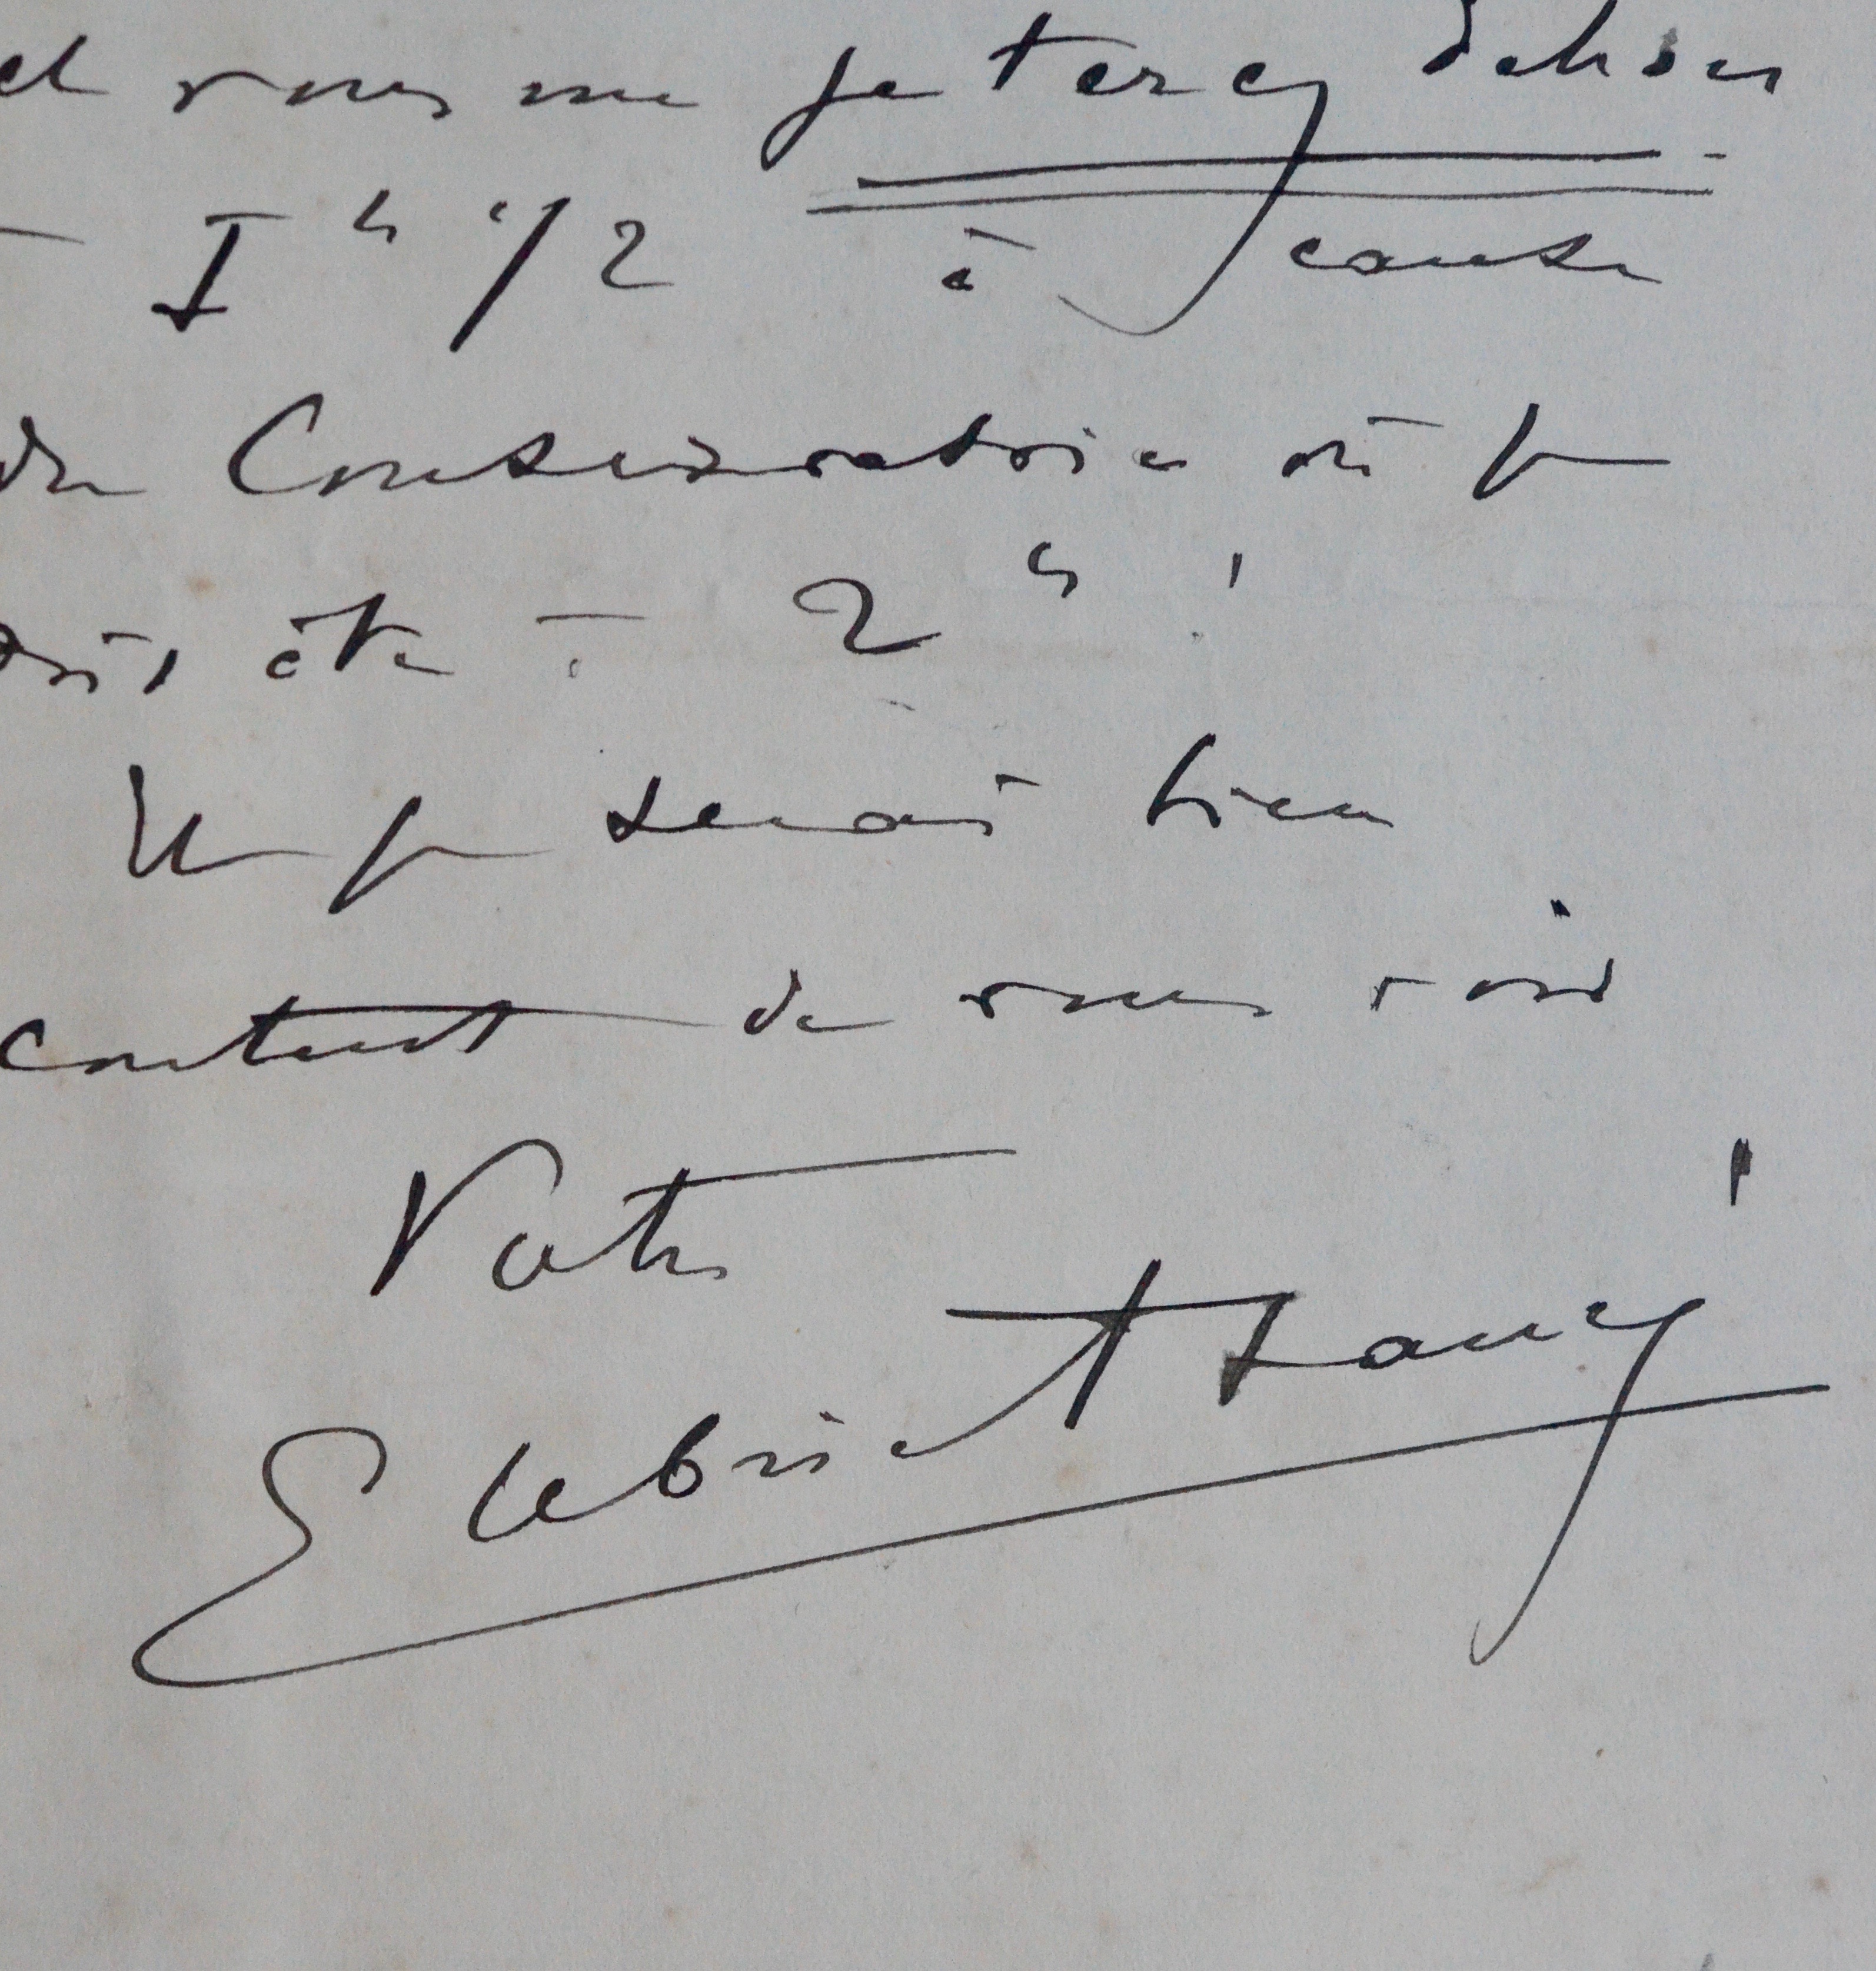 et vous me jeterez dehors
à 1h 1/2 à cause
du Conservatoire où je
dois être à 2h !
Et je serai bien
content de vous voir
Votre
Gabriel Fauré